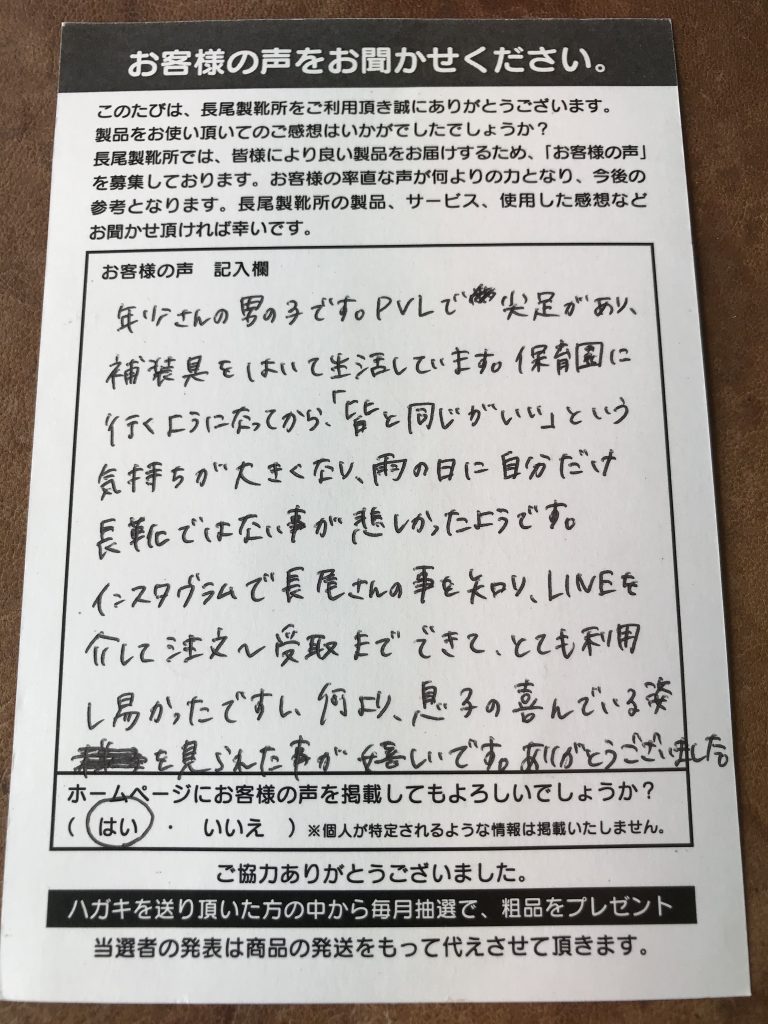 お客様の声をお聞かせください。
このたびは、長尾製靴所をご利用頂き誠にありがとうございます。
製品をお使い頂いてのご感想はいかがでしたでしょうか？
長尾製靴所では、皆様により良い製品をお届けするため、「お客様の声」
を募集しております。お客様の率直な声が何よりの力となり、今後の
参考となります。長尾製靴所の製品、サービス、使用した感想など
お聞かせ頂ければ幸いです。
お客様の声　記入欄
年少さんの男の子です。PVLで尖足があり、
補装具をはいて生活しています。保育園に
行くようになってから、「皆と同じがいい」という
気持ちが大きくなり、雨の日に自分だけ
長靴ではない事が悲しかったようです。
インスタグラムで長尾さんの事を知り、LINEを
介して注文～受取までできて、とても利用
し易かったですし、何より、息子の喜んでいる姿
を見られた事が嬉しいです。ありがとうございました。
ホームページにお客様の声を掲載してもよろしいでしょうか？
（ はい ・ いいえ ）※個人が特定されるような情報は掲載いたしません。
ご協力ありがとうございました。
ハガキを送り頂いた方の中から毎月抽選で、粗品をプレゼント
当選者の発表は商品の発送をもって代えさせて頂きます。